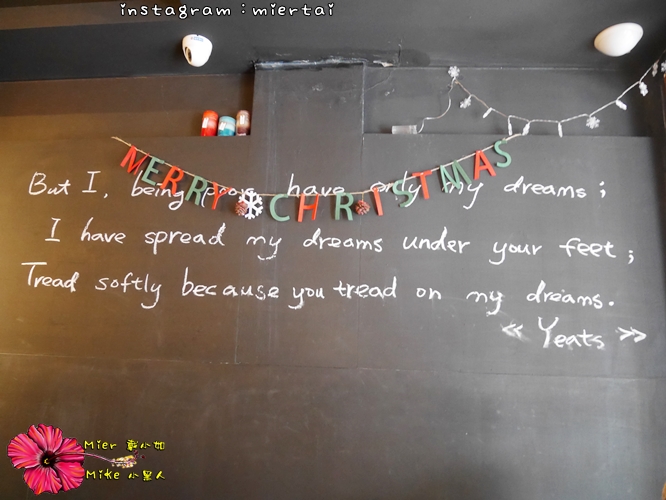 instagram：miertai
MERRY CHRISTMAS
But I, being poor, have only my dreams;
I have spread my dreams under your feet;
Tread softly because you tread on my dreams.
《 Yeats 》
Mier 彭小如
Mike 小黑人